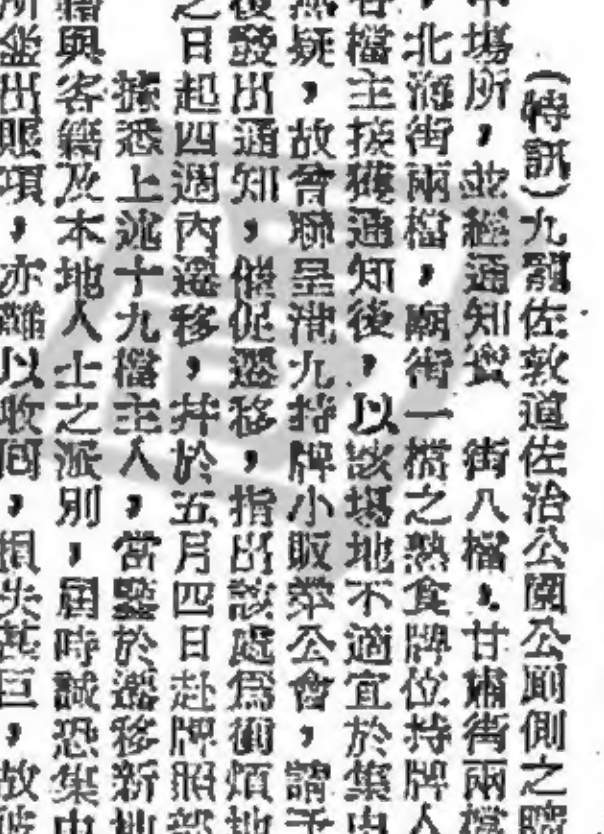 （特訊）九龍佐敦道佐治公園公廁側之
塲所，並經通知寶　街八檔，甘肅街兩檔
，北海街兩檔，廟街一檔之熟食牌位持牌人
檔主接獲通知後，以該塲地不適宜於集中
疑，故曾聯呈港九持牌小販業公會，請予
後發出通知，催促遷移，指出該處爲衝煩地
之日起四週內遷移，幷於五月四日赴牌照部
據悉上述十九檔主人，當鑒於遷移新地
籍與客籍及本地人士之派別，屆時誠恐集中
所出賬項，亦難以收回，損失甚巨，故